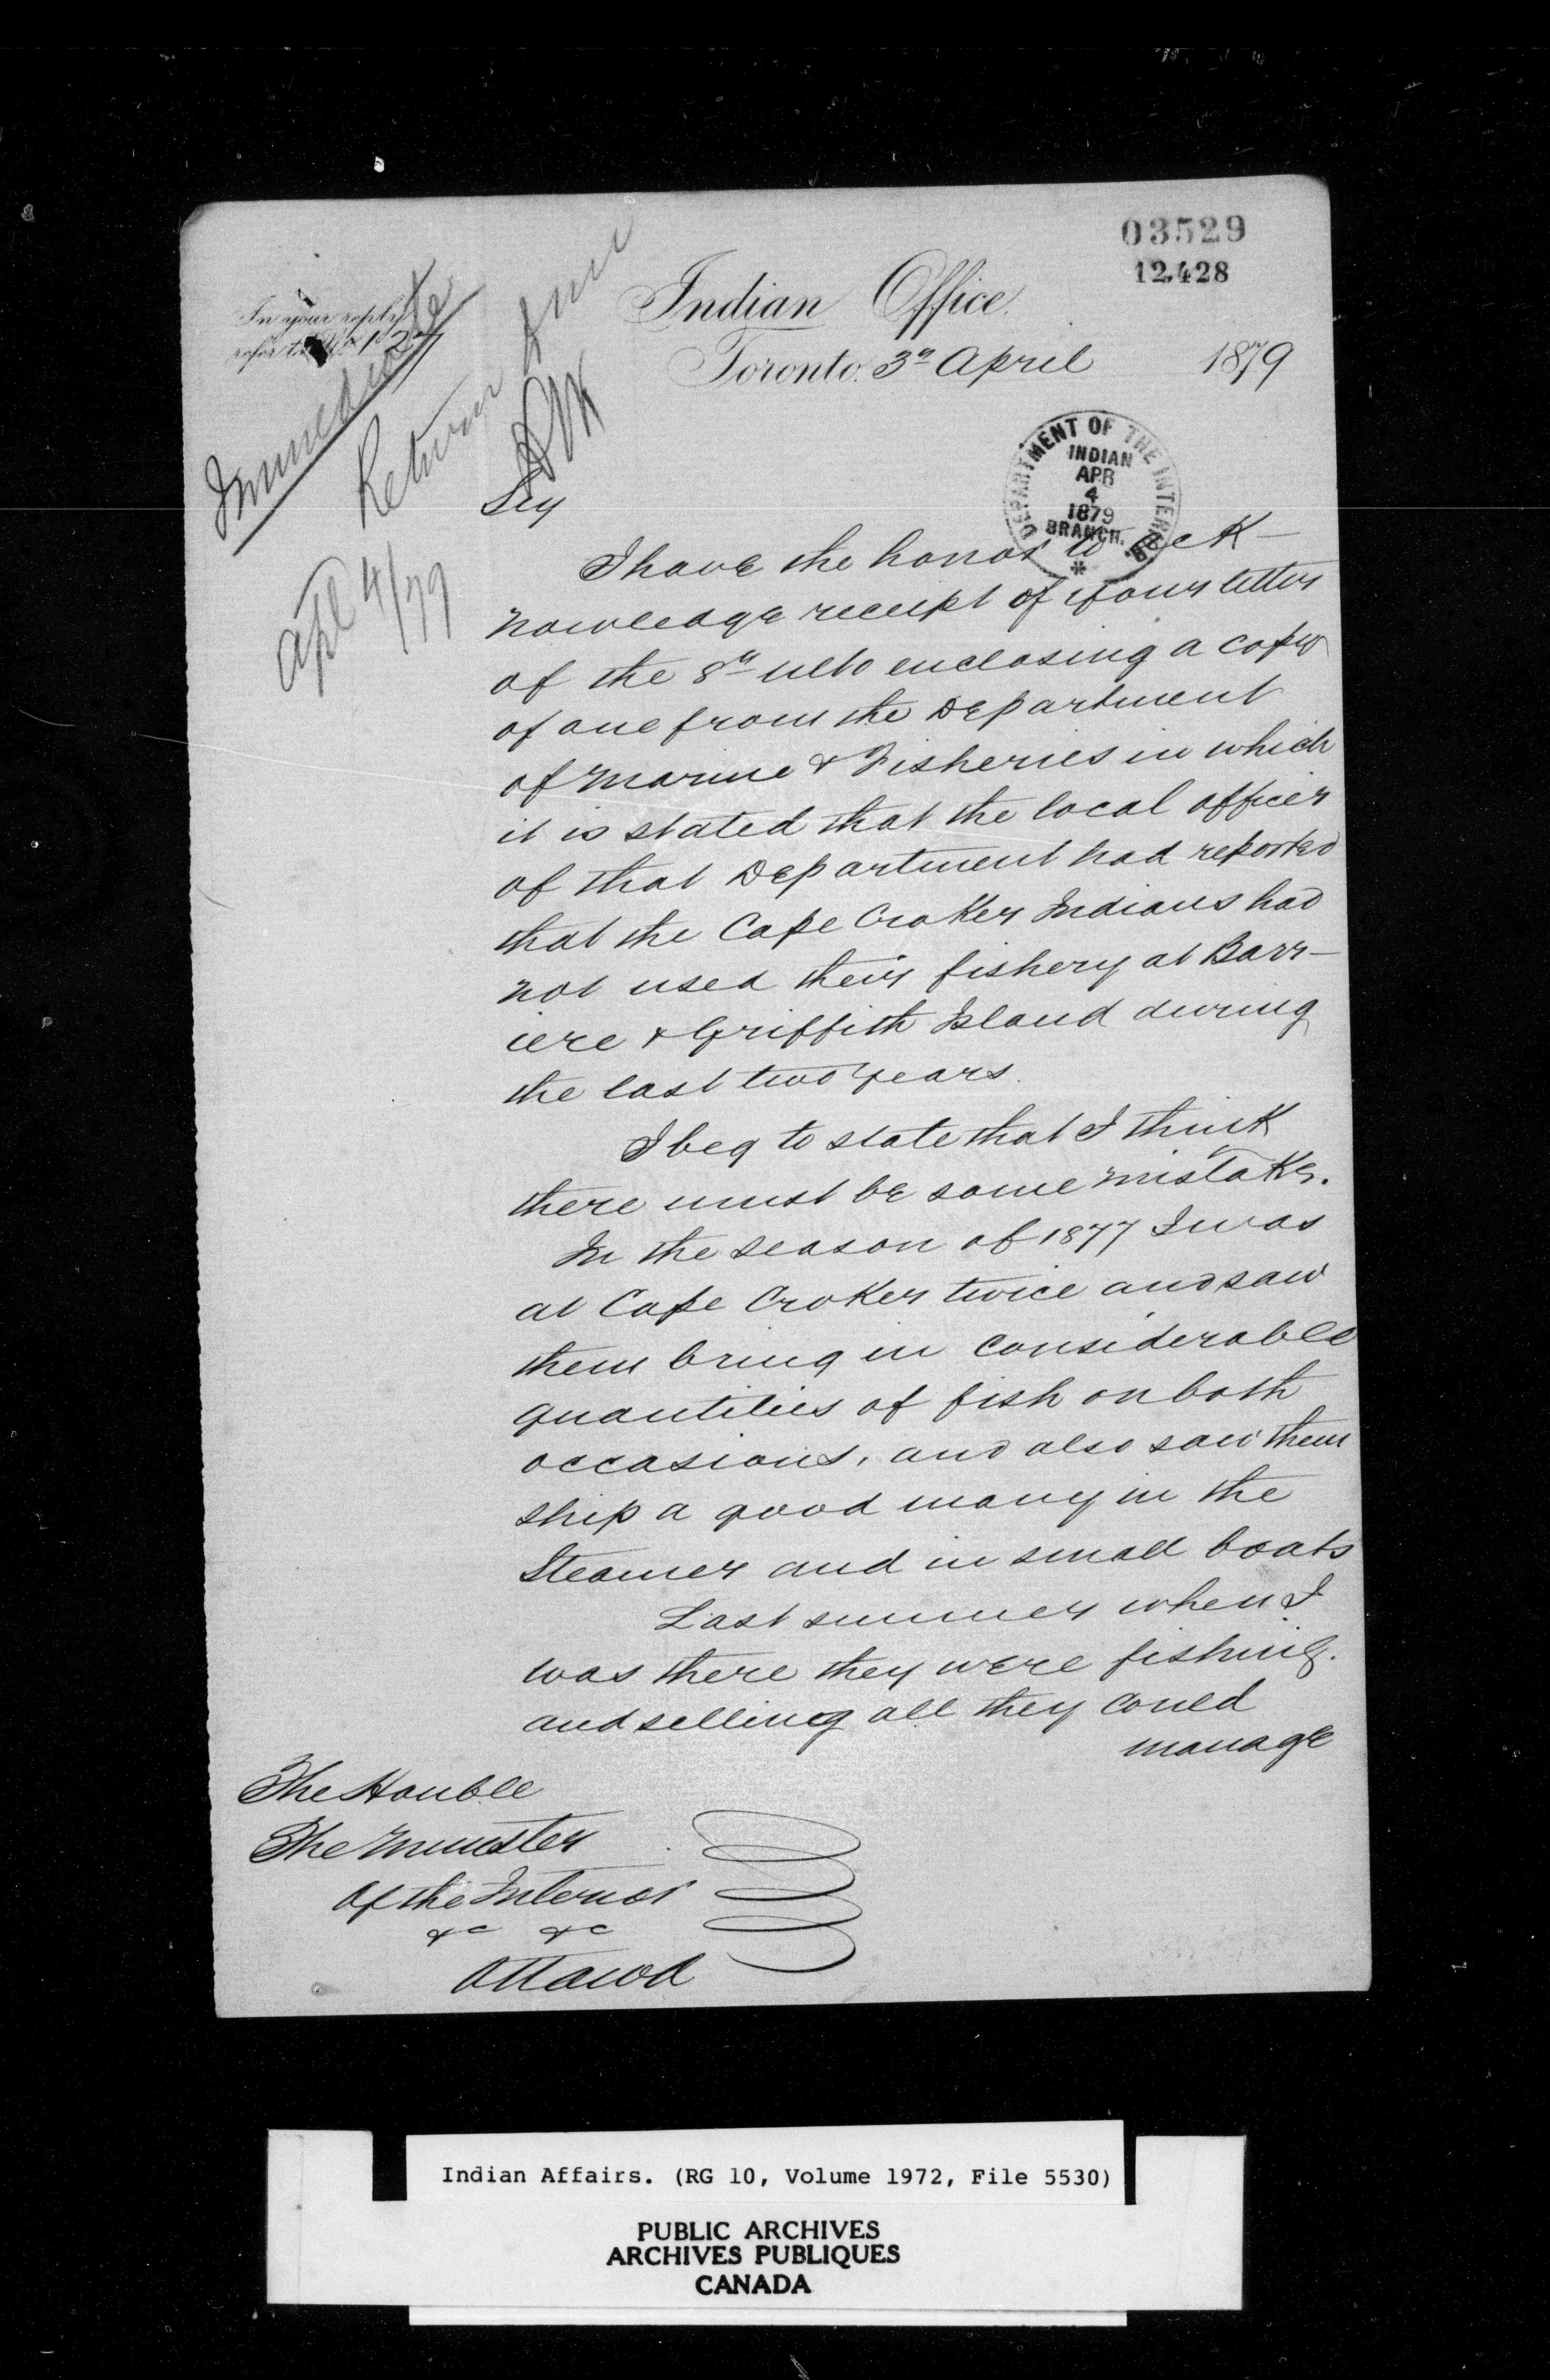 03529
12.428
Indian Office.
In your reply
refer to
Toronto. 3d April 1879
Immediate
Return
Apl 4/79
DEPARTMENT OF THE INTERIOR
INDIAN
APR
4
1879
BRANCH.
*
Sir
I have the honor to ack-
nowledge receipt of your letter
of the 8th ulto enclosing a copy
of one from the Department
of Marine & Fisheries in which
it is stated that the local officer
of that Department had reported
that the Cape Croker Indians had
not used their fishery at Barr-
iere & Griffith Island during
the last two years.
I beg to state that I think
there must be some mistake.
In the season of 1877 I was
at Cape Croker twice and saw
them bring in considerable
quantities of fish on both
occasions, and also saw them
ship a good many in the
Steamer and in small boats
Last summer when I
was there they were fishing.
and selling all they could
manage
The Honble
The Minister
Of the Interior
&c &c
Ottawa
Indian Affairs. (RG 10, Volume 1972, File 5530)
PUBLIC ARCHIVES
ARCHIVES PUBLIQUES
CANADA